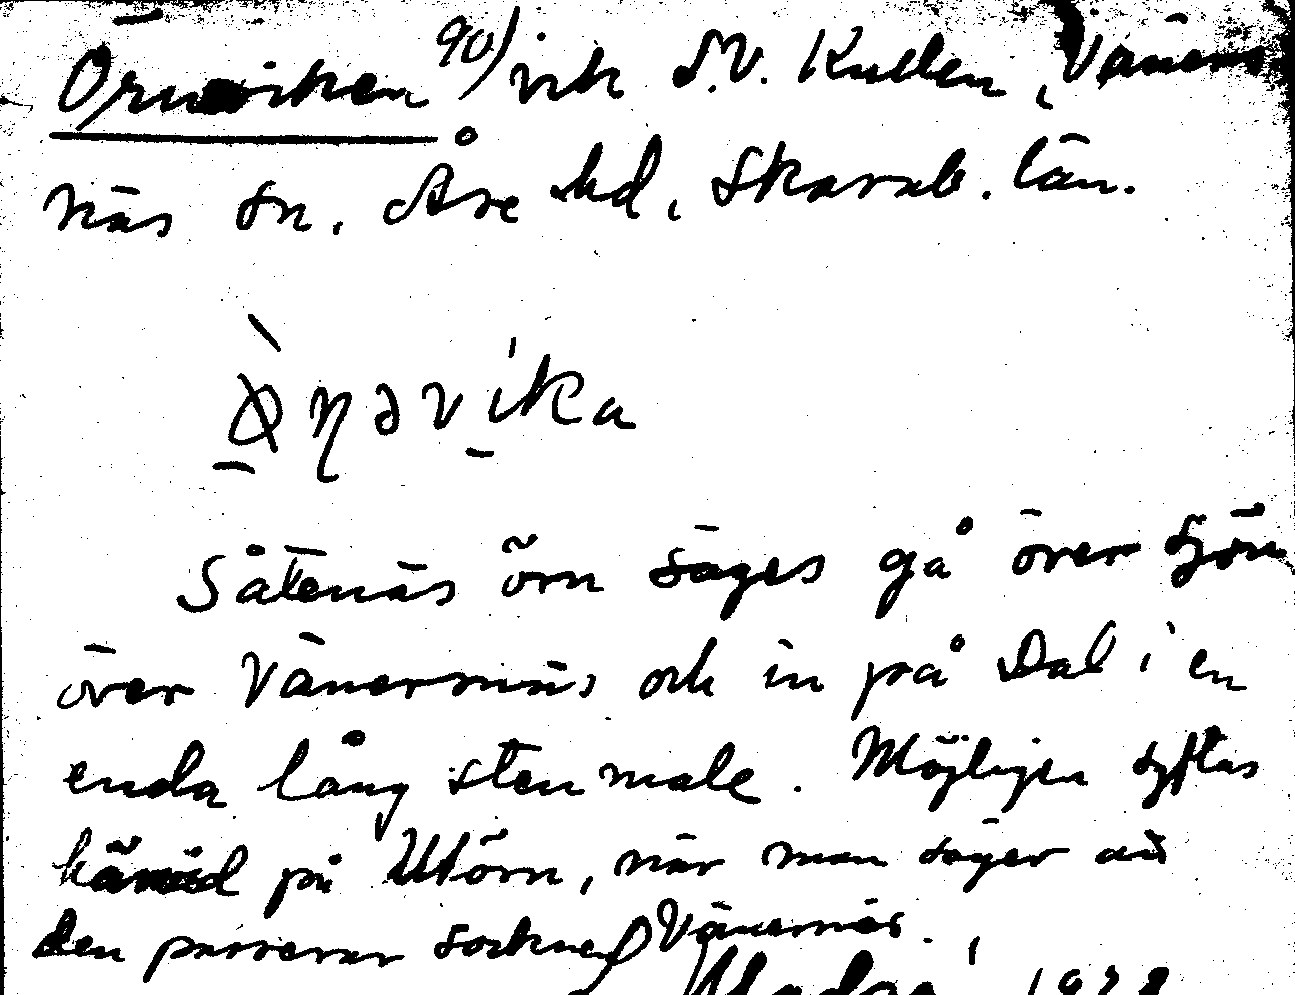 Örnviken 90) vik S.V. Kullen, Väners-
näs sn. Åse hd, Skarab. län.
Ønavika
Såtenäs örn säges gå över sjön
över Vänersnäs och in på Dal i en
enda lång stenmale. Möjligen syftas
härvid på Utörn, när man säger att
den passerar socknen Vänersnäs.